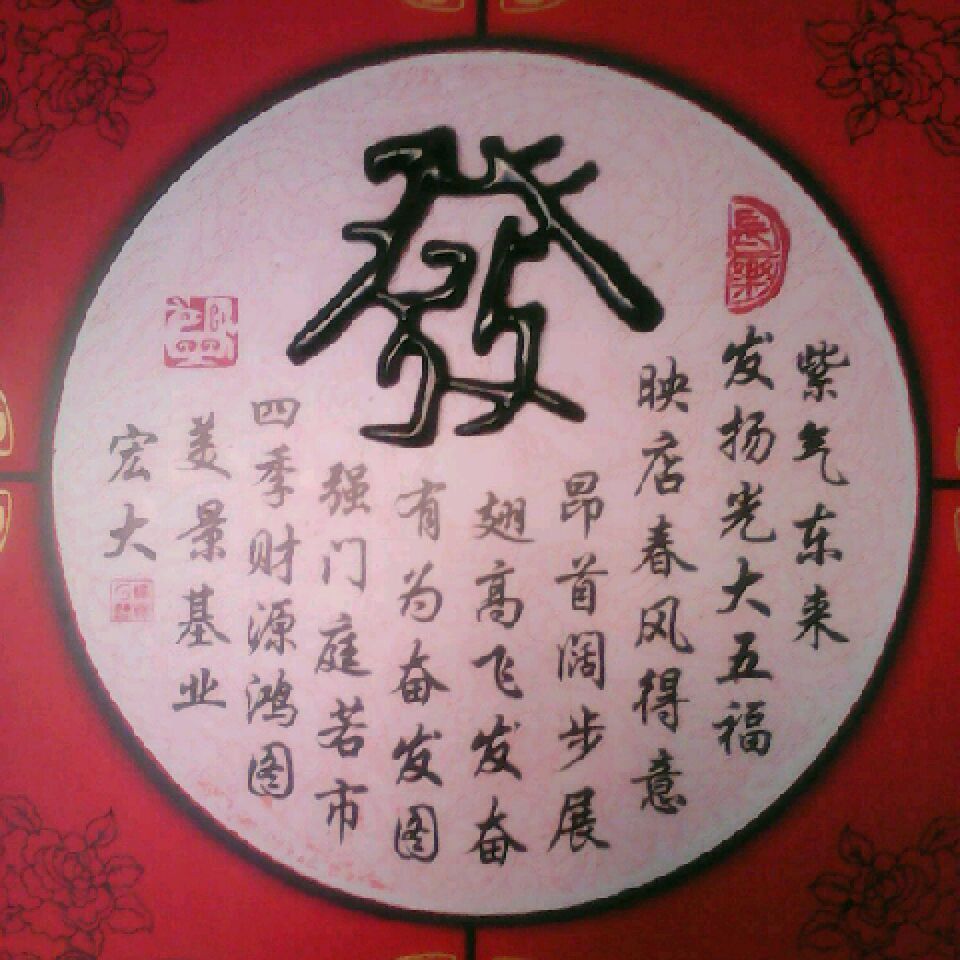 發
長樂
紫气东来
发扬光大五福
映店春风得意
昂首阔步展
翅高飞发奋
有为奋发图
强门庭若市
四季财源鸿图
美景基业
宏大